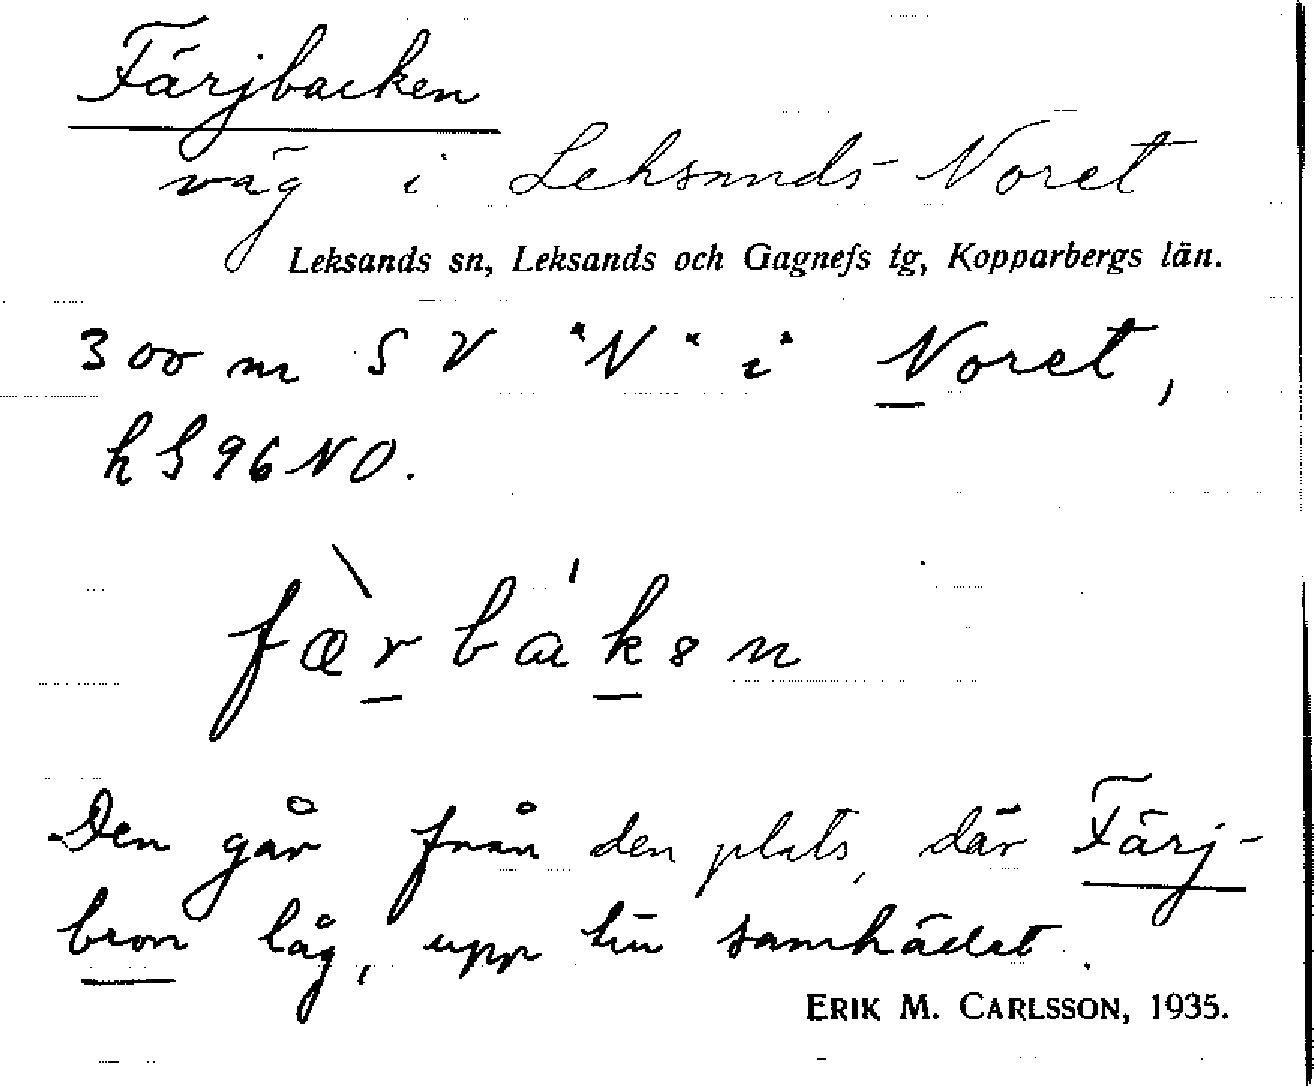 Färjbacken
väg i Leksands-Noret
Leksands sn, Leksands och Gagnefs tg, Kopparbergs län.
300 m SV "N" i Noret,
96 NO.
færbakən
Den går från den plats, där Färj-
bron låg, upp till samhället.
ERIK M. CARLSSON, 1935.